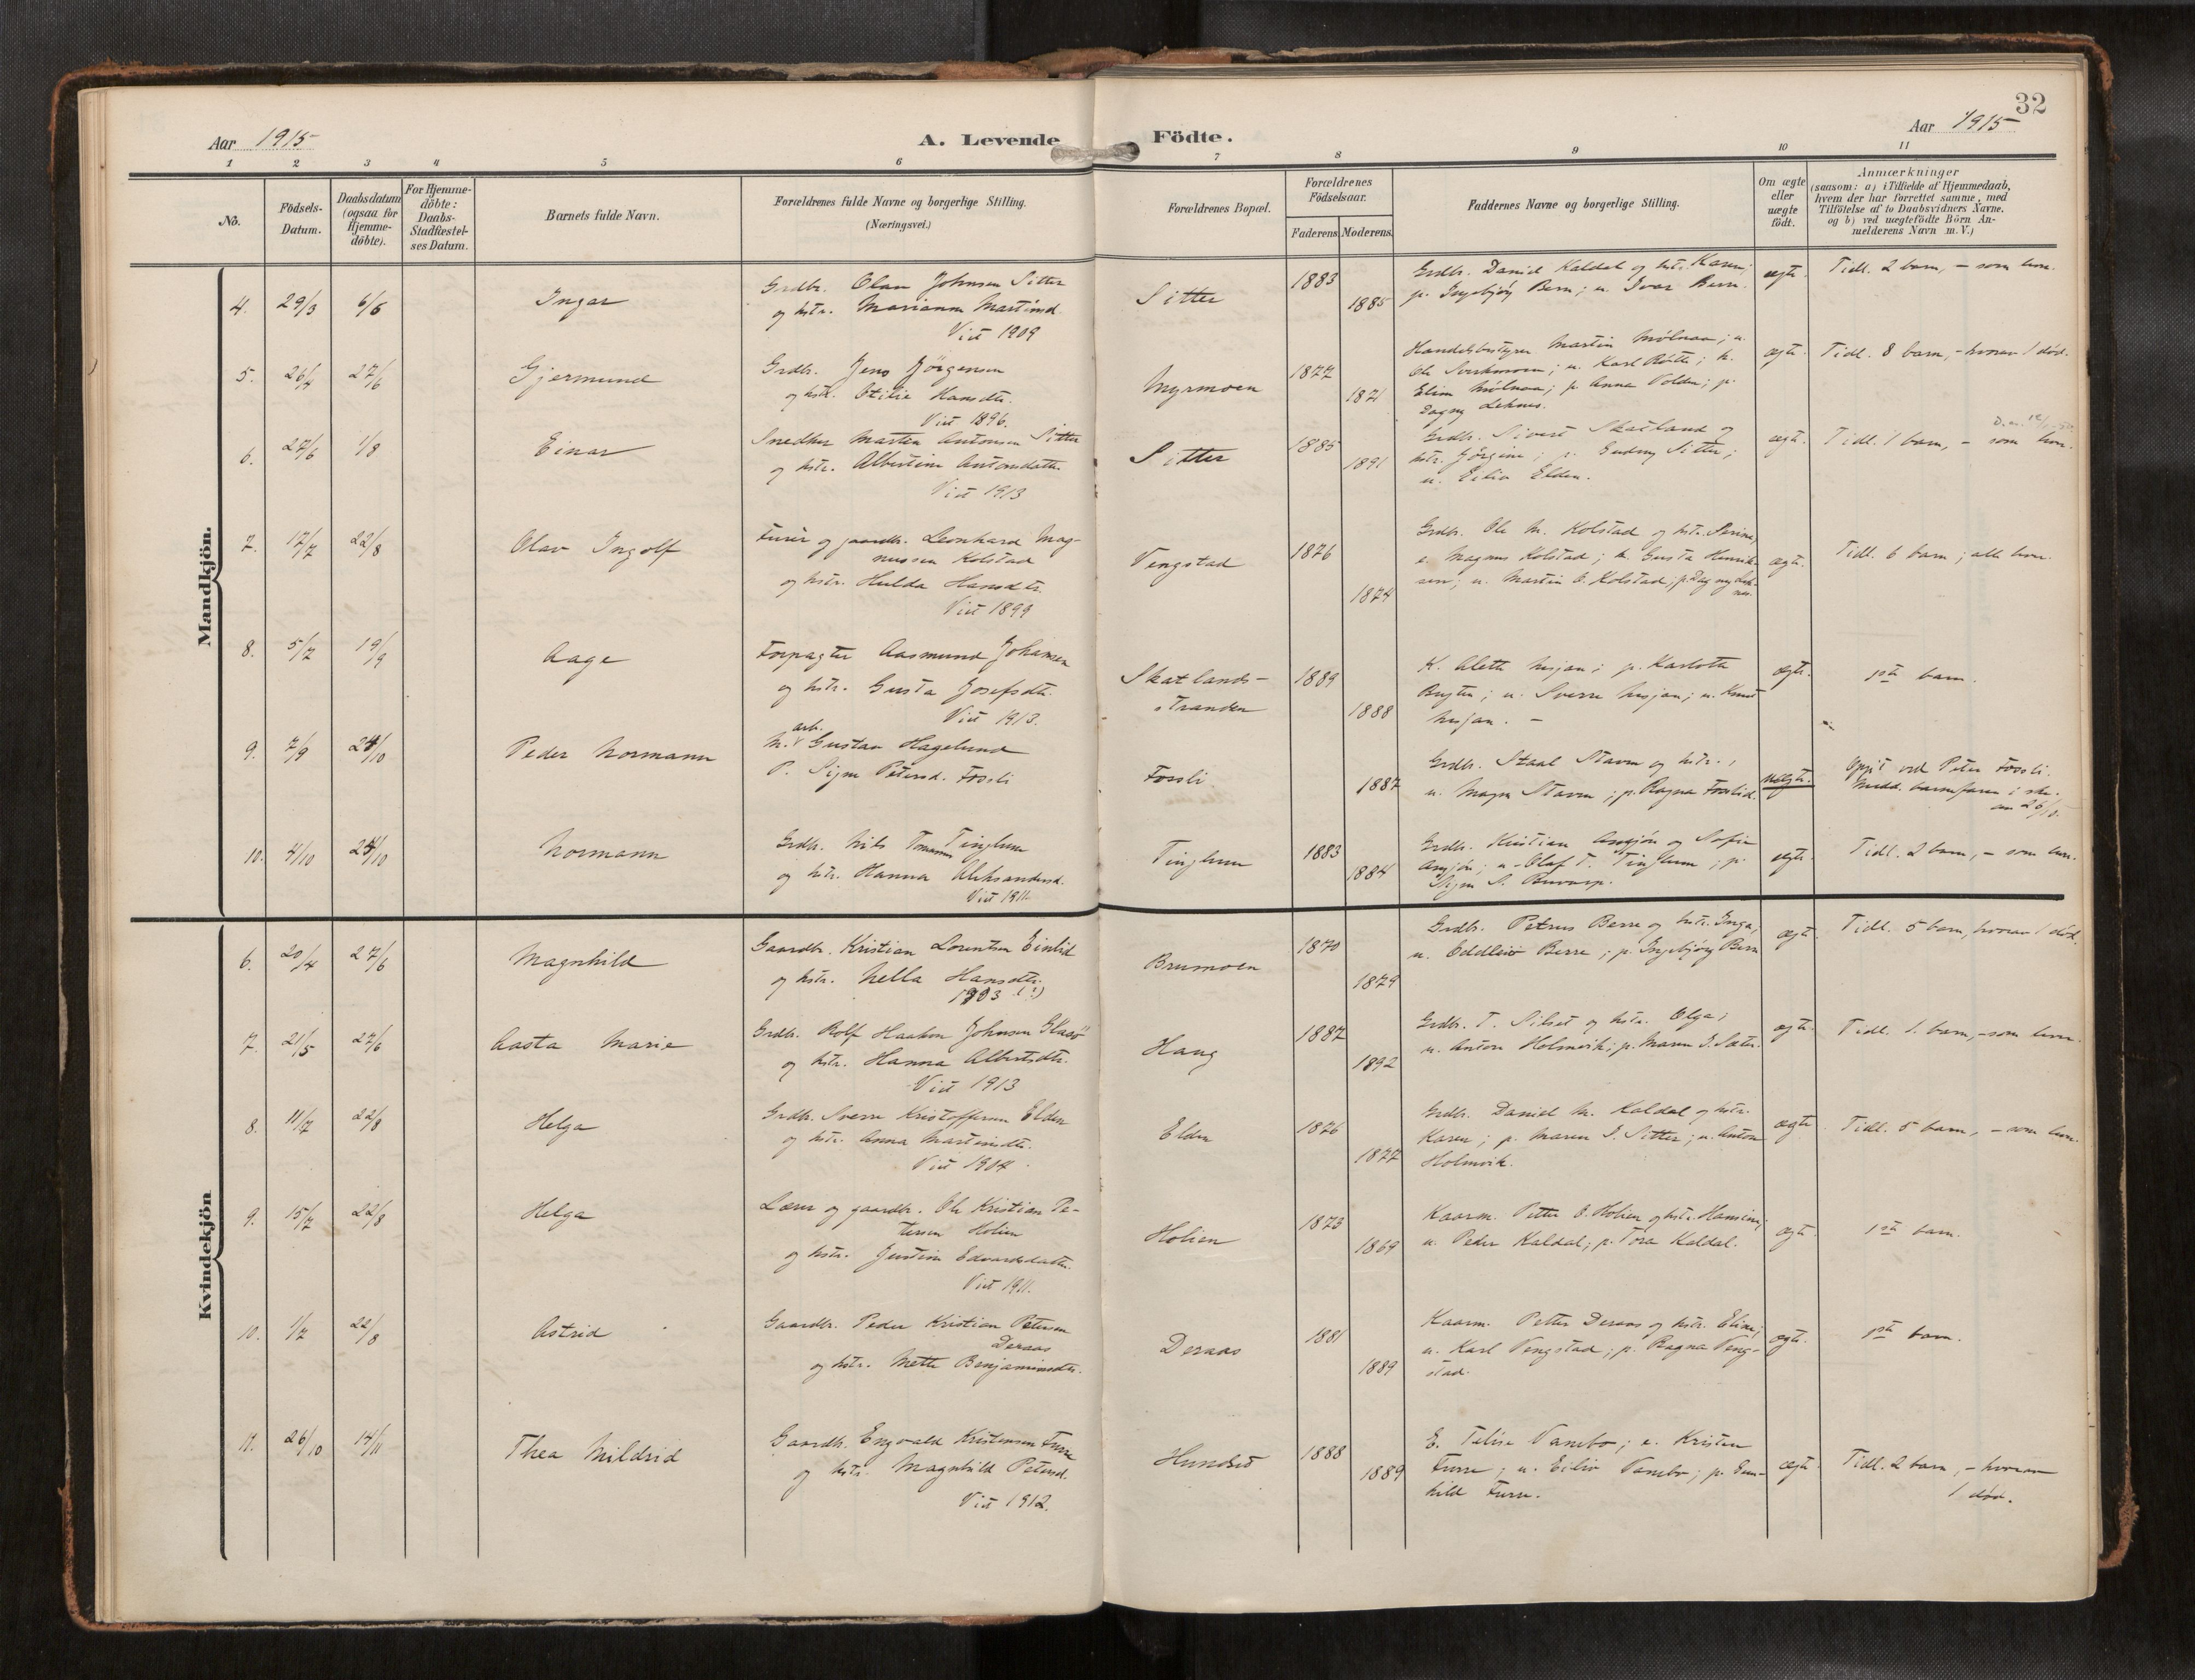 32
Aar 1915
A. Levende Födte.
Aar 1915
1 2 3 4 5 6 7 8 9 10 11
No.
Födsels-
Datum.
Daabsdatum
(ogsaa for
Hjemme-
döbte).
For Hjemme-
döbte:
Daabs-
Stadfæstel-
ses Datum.
Barnets fulde Navn.
Forældrenes fulde Navne og borgerlige Stilling.
(Næringsvei.)
Forældrenes Bopæl.
Forældrenes
Födselsaar.
Faderens. Moderens.
Faddernes Navne og borgerlige Stilling.
Om ægte
eller
uægte
födt.
Anmærkninger
(saasom: a) i Tilfælde af Hjemmedaab,
hvem der har forrettet samme, med
Tilföielse af to Daabsvidners Navne,
og b) ved uægtefödte Börn An-
melderens Navn m. V.)
Mandkjön.
4. 29/3 6/6 Ingar
Grdbr. Olav Johnsen Sitter
og hstr. Marianna Martinsd.
Viet 1909
Sitter 1883 1885
Grdbr. Daniel Kaldal og hstr. Karen;
p. Ingebjörg Berre; u. Ivar Berre.
ægte. Tidl. 2 barn, - som lever.
5. 26/4 27/6 Gjermund
Grdbr. Jens Jörgensen
og hstr. Otilie Hansdtr.
Viet 1896.
Myrmoen 1877 1871
Handelsbestyrer Martin Mölnaa; u.
Ole ; u. Karl ; k.
Elise Mölnaa; p. Anna Volden; p.
Dagny Leknes.
ægte. Tidl. 8 barn, - hvorav 1 död.
6. 27/6 1/8 Einar
Snedker Marten Antonsen Sitter
og hstr. Albertine Antonsdatter
Viet 1913
Sitter 1885 1891
Grdbr. Sivert Skatland og
hstr. Jörgine; p. Gudny Sitter;
u. Eilif Elden.
ægte. Tidl. 1 barn, - som lever.
7. 17/7 22/8 Olav Ingolf
Furer og gaardbr. Leonhard Mag-
nussen Kolstad
og hstr. Hulda Hansdtr.
Viet 1899
Vengstad 1876 1874
Grdbr. Ole M. Kolstad og hstr. Serine;
e. Magnus Kolstad; k. Gusta Henrik-
sen; u. Martin O. Kolstad; p. Dagny Lek-
nes.
ægte. Tidl. 6 barn; alle lever.
8. 5/7 19/9 Aage
Forpagter Aasmund Johansen
og hstr. Gusta Josefsdtr.
Viet 1913.
Skatlands-
stranden 1889 1888
K. Aletta Mosjøen; p. Karlotte
; u. Sverre ; u. Knut
ægte. 1ste barn.
9. 7/9 24/10 Peder Normann
arb.
M. Gustav Hagelund
P. Signe Petersd. Fossli
Fossli 1887
Grdbr. Staal Staven og hstr.,
u. Magne Staven; p. Ragna Fosslid.
uægte.
Opgit ved Peter Fossli.
Medd. barnefaren i skr.
av 26/10.
10. 4/10 24/10 Normann
Grdbr. Nils Tomassen Tinglum
og hstr. Hanna Aleksandersd.
Viet 1911
Tinglum 1883 1884
Grdbr. Kristian og Sofie
; u. Olaf T. Tinglum; p.
ægte. Tidl. 2 barn, - som lever.
Kvindekjön
6. 20/4 27/6 Magnhild
Gaardbr. Kristian Lorentsen Einlid
og hstr. Nella Hansdtr.
1903 (?)
Brumoen 1870 1879
Grdbr. Petrus Berre og hstr. Inga,
u. Oddleiv Berre; p. Ingebjörg Berre
ægte. Tidl. 5 barn, hvorav 1 död.
7. 21/5 27/6 Aasta Marie
Grdbr. Rolf Haakon Johnsen Glasö
og hstr. Hanna Albertsdtr.
Viet 1913
Haug 1887 1892
Grdbr. T. Silset og hstr. Olga;
u. Anton Holmvik; p. Maren J. Sitter.
ægte. Tidl. 1. barn, - som lever.
8. 11/7 22/8 Helga
Grdbr. Sverre Kristoffersen Elden
og hstr. Anna Martinsdtr.
Viet 1904.
Elden 1876 1877
Grdbr. Daniel M. Kaldal og hstr.
Karen; p. Maren J. Sitter; u. Anton
Holmvik.
ægte. Tidl. 5 barn, - som lever.
9. 15/7 22/8 Helga
Lærer og gaardbr. Ole Kristian Pe-
tersen Holien
og hstr. Justine Edvardsdatter.
Viet 1911.
Holien 1873 1869
Kaarm. Petter O. Holien og hstr. Hansine;
u. Peder Kaldal; p. Tora Kaldal.
ægte. 1ste barn.
10. 1/7 22/8 Astrid
Gaardbr. Peder Kristian Petersen
Deraas
og hstr. Mette Benjaminsdtr.
Deraas 1881 1889
Kaarm. Petter Deraas og hstr. Eline;
u. Karl Vengstad; p. Ragna Veng-
stad.
ægte. 1ste barn.
11. 26/10 14/11 Thea Mildrid
Gaardbr. Engvald Kristensen Furre
og hstr. Magnhild Petersd.
Viet 1912.
Hundset 1888 1889
E. Telise Vanebo; e. Kristen
Furre; u. Eiliv Vanebo; p. Gun-
hild Furre.
ægte. Tidl. 2 barn, - hvorav
1 död.